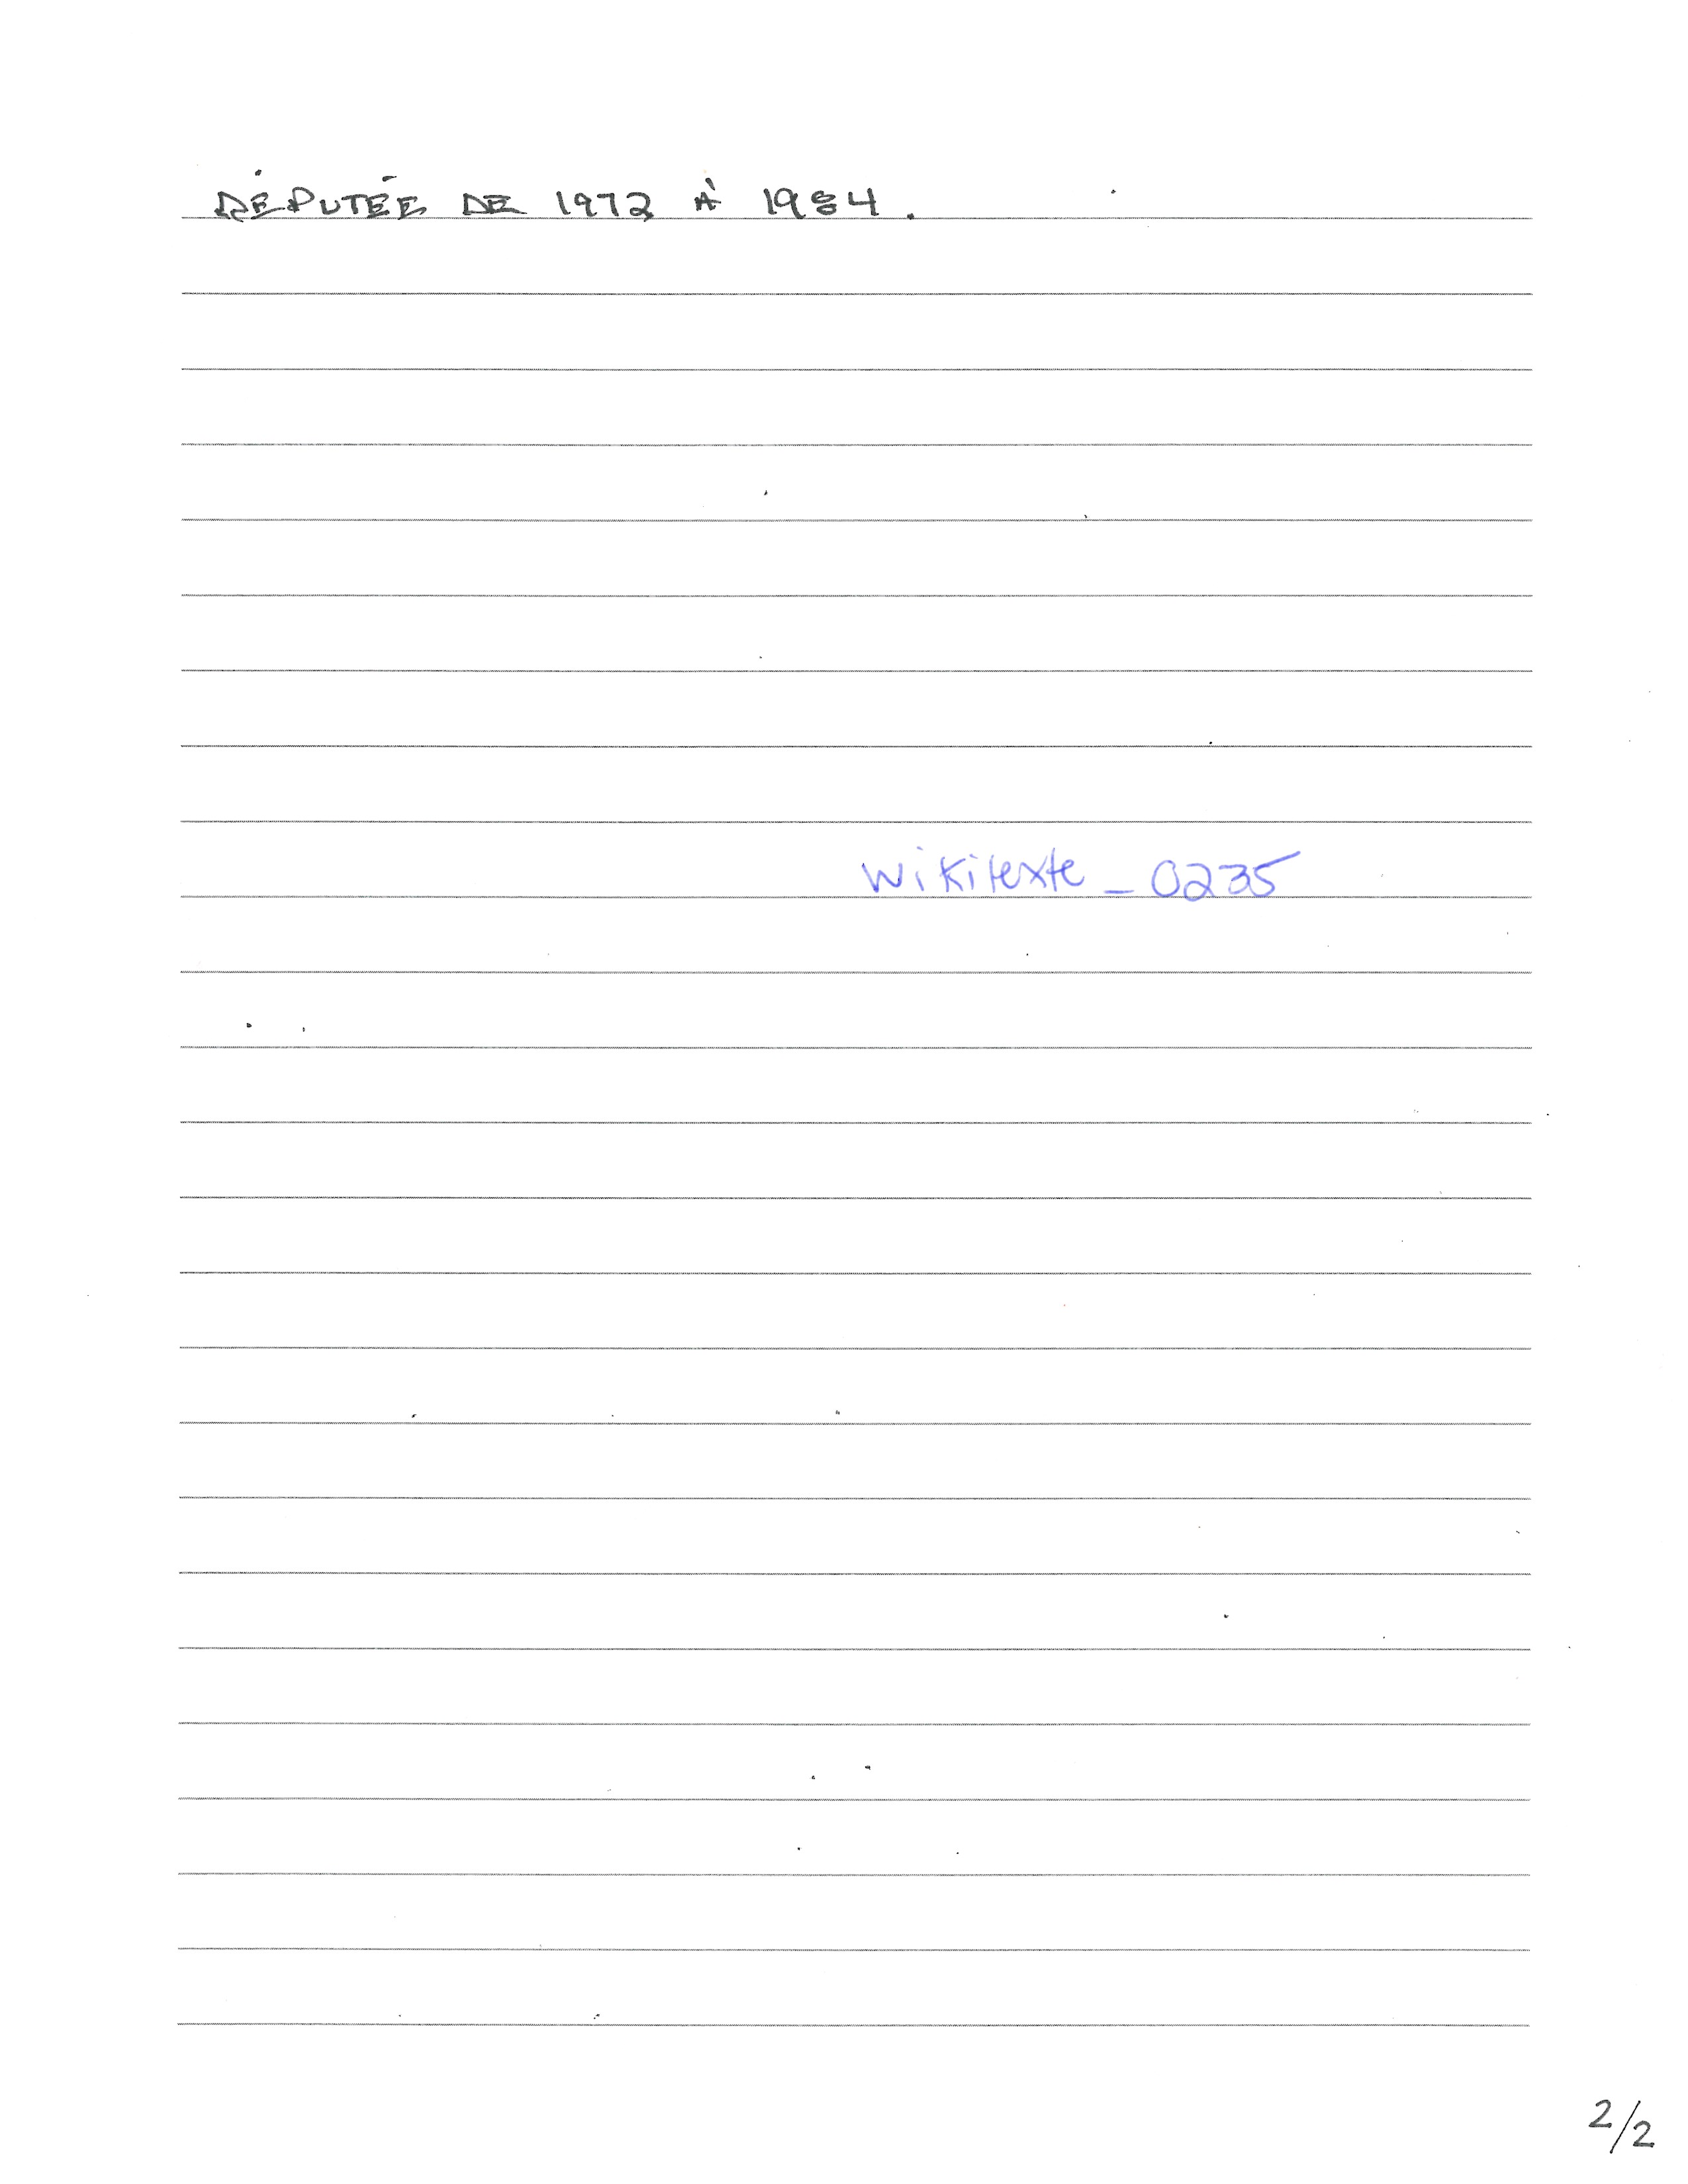 DÉPUTÉE DE 1972 À 1984.
Wikitexte_0235
2/2